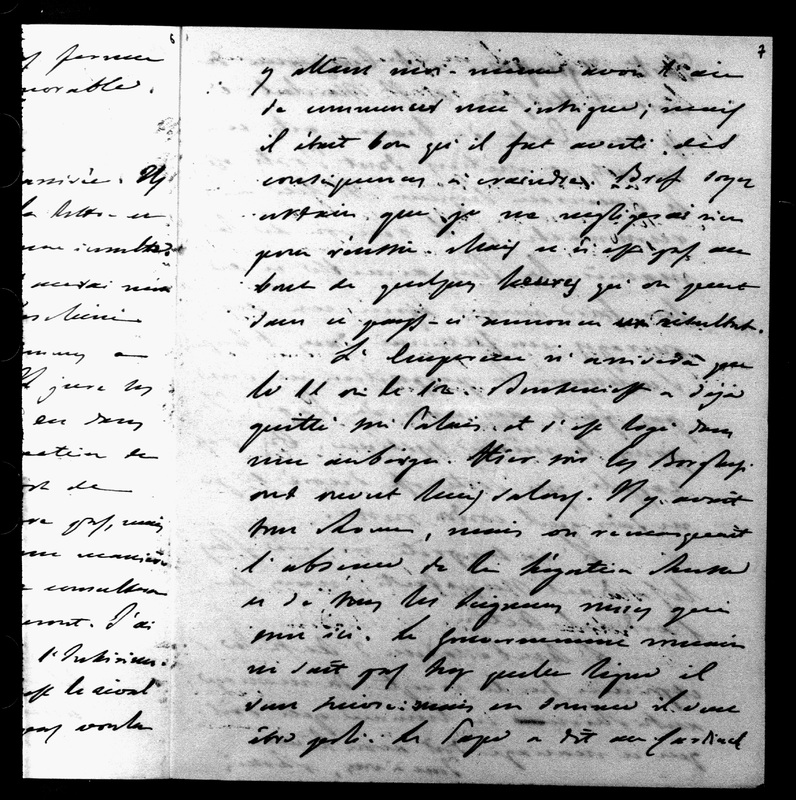 6
p ferme
morable.
arrivée. Il
la lettre et
une insulte?
en dans
ration de
pas, mais
une manière
consultera
ront. J'ai
l'Intérieur
est le seul
pas voulu
7
y allant moi-même avoir l'air
de commencer une intrigue; mais
il était bon qu'il fut averti des
conséquences à craindre. Bref soyez
certain que je ne négligerai rien
pour réussir. Mais ce n'est pas au
bout de quelques heures qu'on peut
dans ce pays-ci annoncer un résultat.
L'Empereur n'arrivera que
le 11 ou le 12. Boutenieff a déjà
quitté son Palais et s'est logé dans
une auberge. Hier soir les Borghese
ont ouvert leurs salons. Il y avait
tout Rome, mais on remarquait
l'absence de la légation Russe
et de tous les seigneurs russes qui
sont ici. Le gouvernement romain
ne sait pas trop quelle ligne il
doit suivre: mais en somme il veut
être poli. Le Pape a dit au Cardinal